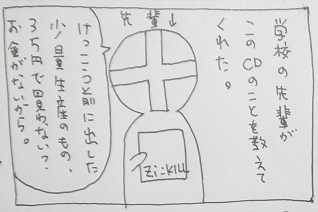 学校の先輩が
このCDのことを教えて
くれた。
先輩↓
Zi:KILL
けっこう前に出した
少量生産のもの、
35円で買わないっ、
お金がないから。